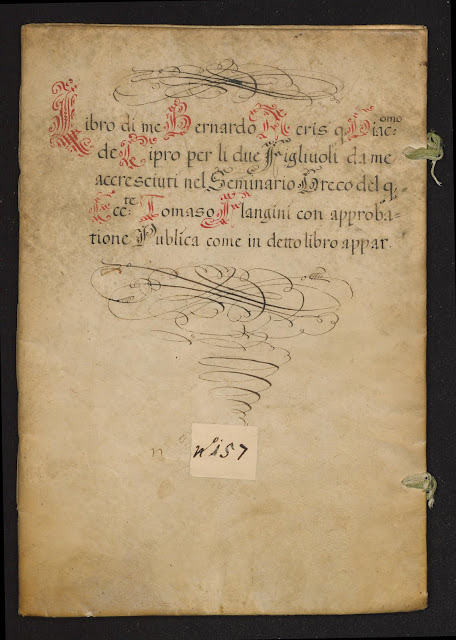 Libro di me Bernardo Acris q. Giac:omo
de Cipro per li due Figliuoli da me
accresciuti nel Seminario Greco del q:
Ecc:te Tomaso Flangini con approba-
tione Publica come in detto libro appar.
nº 157